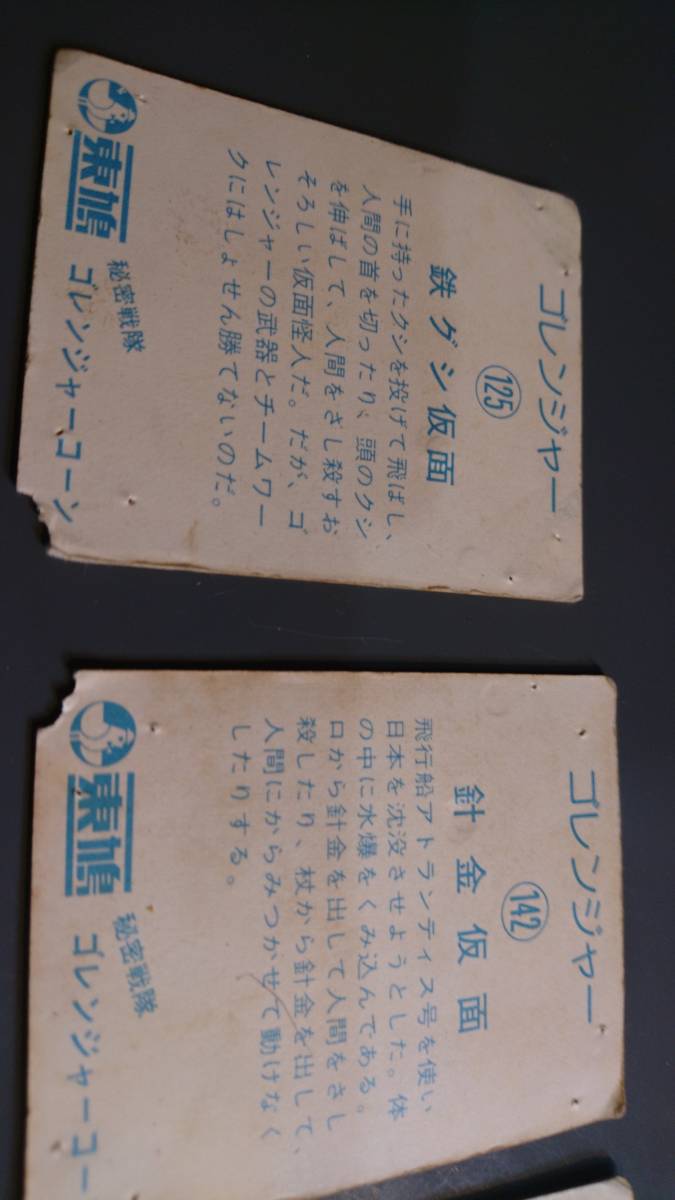 ゴレンジャー
125
鉄グシ仮面
手に持ったクシを投げて飛ばし、
人間の首を切ったり、頭のクシ
を伸ばして、人間をさし殺すお
そろしい仮面怪人だ。だが、ゴ
レンジャーの武器とチームワー
クにはしょせん勝てないのだ。
東鳩
秘密戦隊
ゴレンジャーコーン
ゴレンジャー
142
針金仮面
飛行船アトランティス号を使い
日本を沈没させようとした。体
の中に水爆をくみ込んである。
口から針金を出して人間をさし
殺したり、杖から針金を出して、
人間にからみつかせて動けなく
したりする。
東鳩
秘密戦隊
ゴレンジャーコー